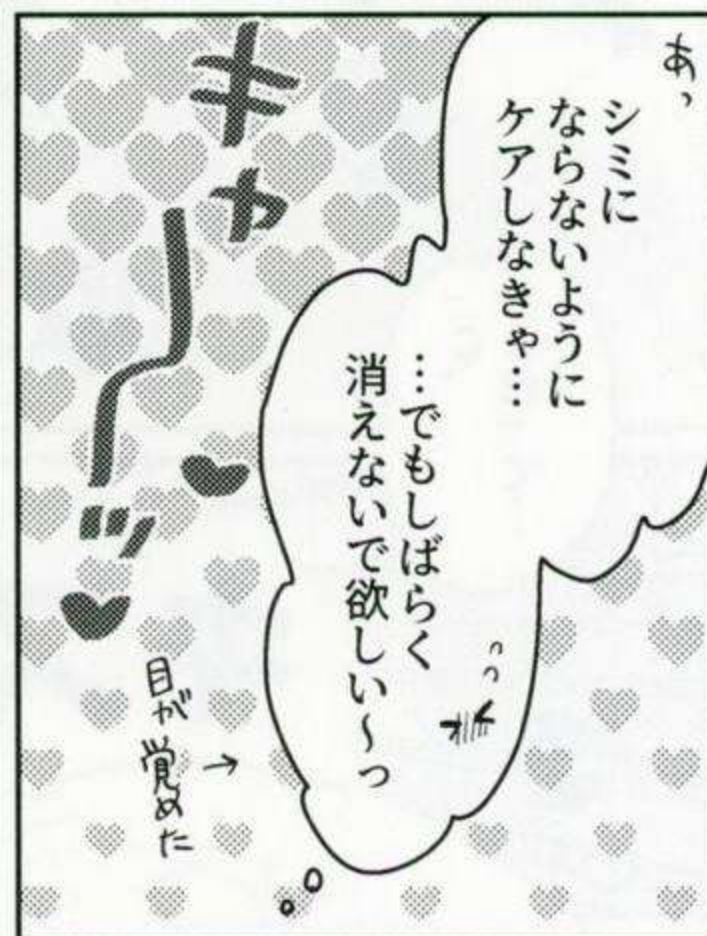 あっ
シミに
ならないように
ケアしなきゃ…
…でもしばらく
消えないで欲しい～っ
キャーッ
目が覚めた